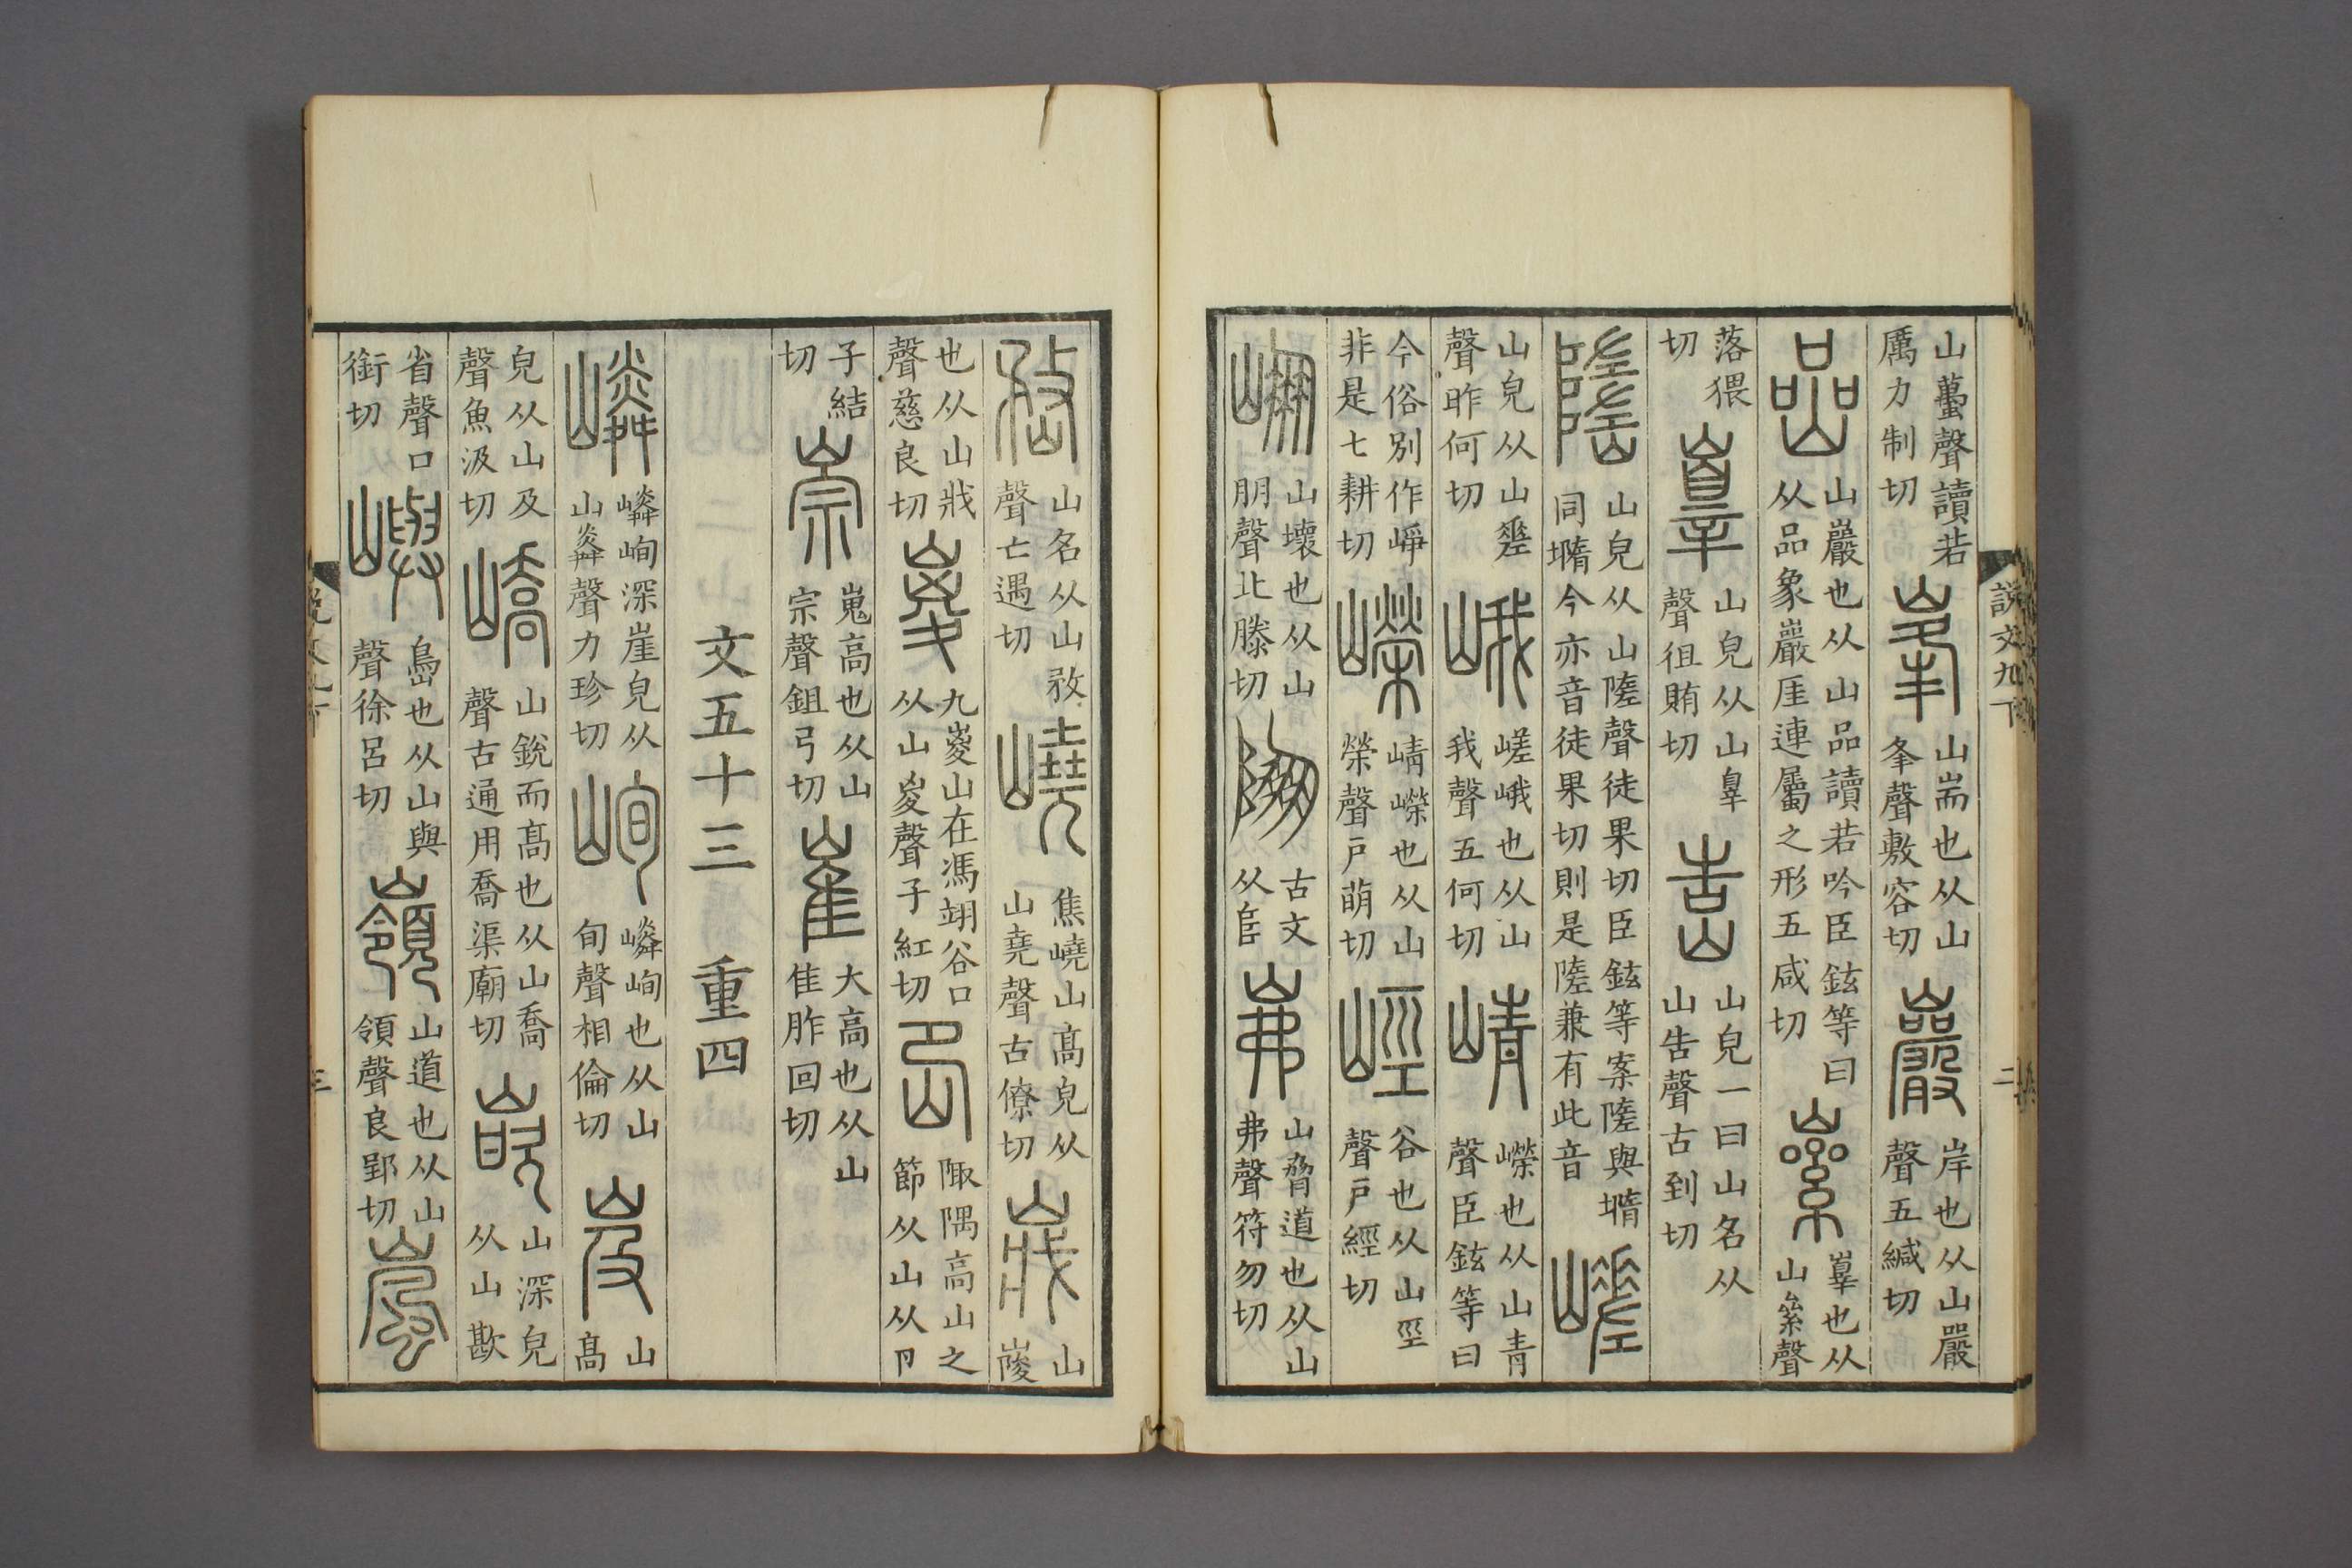 山蠆聲讀若厲力制切峯山耑也从山夆聲敷容切巖岸也从山嚴聲五緘切
嵒山巖也从山品讀若吟臣鉉等曰从品象巖厓連屬之形五咸切嶵也从山絫聲
落猥切嶵山皃从山辠聲徂賄切峼山皃一曰山名从山告聲古到切
嶞山皃从山隓聲徒果切臣鉉等案隓與墯同墯今亦音徒果切則是隓兼有此音嵯
山皃从山𡍮聲昨何切峨嵯峨也从山我聲五何切崝嶸也从山青聲臣鉉等曰
今俗別作崢非是七耕切嶸崝嶸也从山榮聲戶萌切𡷨谷也从山巠聲戶經切
崩山壞也从山朋聲北滕切古文从𨸏岪山脅道也从山弗聲符勿切
說文九下
二
嵍山名从山敄聲亡遇切嶢焦嶢山高皃从山堯聲古僚切山
也从山戕聲慈良切嵏九嵏山在馮翊谷口从山嵏聲子紅切岊陬隅高山之節从山从卪
子結切崇嵬高也从山宗聲鉏弓切崔大高也从山隹聲胙回切
文五十三 重四
嶙嶙峋深崖皃从山粦聲力珍切峋嶙峋也从山旬聲相倫切岌山高
皃从山及聲魚汲切嶠山銳而高也从山喬聲古通用喬渠廟切嵌山深皃从山歁
省聲口銜切嶼島也从山與聲徐呂切嶺山道也从山領聲良郢切嵐
說文九下
三